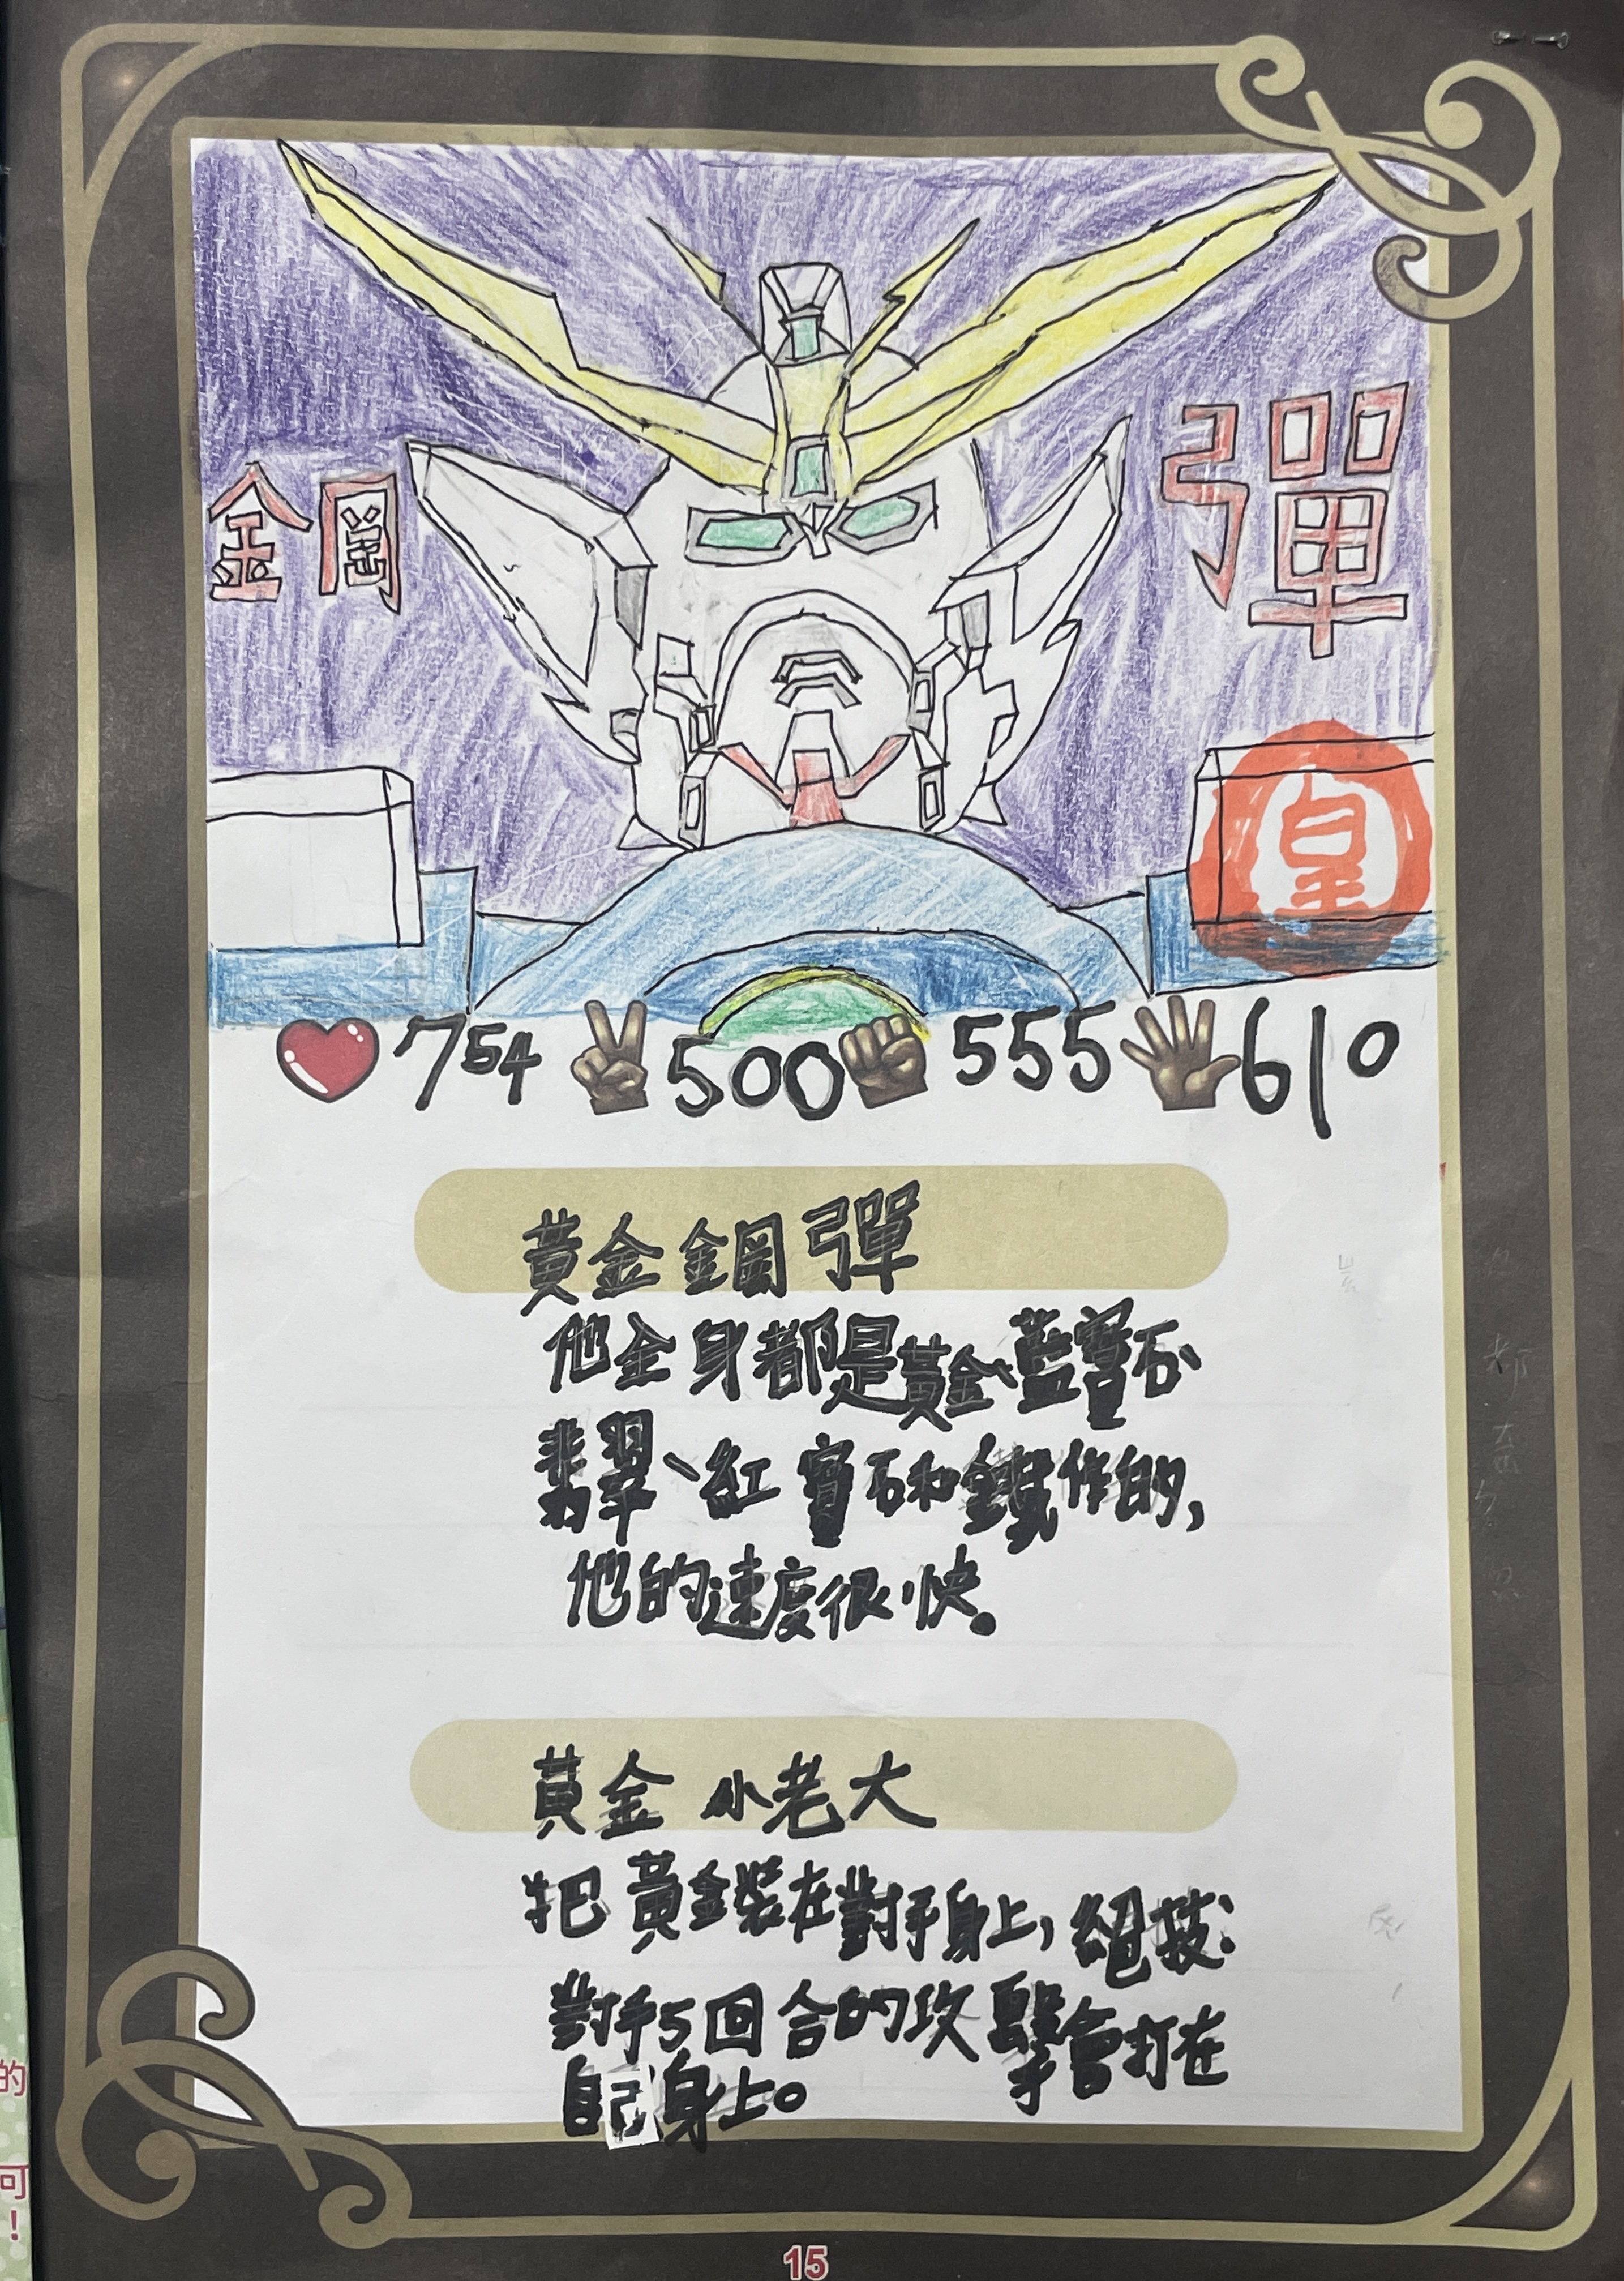 鋼 彈
皇
754 500 555 610
黃金鋼彈
他全身都是黃金、藍寶石、
翡翠、紅寶石和鐵作的,
他的速度很快。
黃金小老大
把黃金裝在對手身上,絕技:
對手5回合的攻擊會打在
自己身上。
15
的
可
!